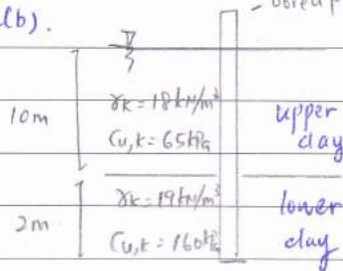 (b).
bored p
10m
γk = 18 kN/m³
Cu,k = 65kPa
upper
clay
2m
γk = 19kN/m³
Cu,k = 160kPa
lower
clay